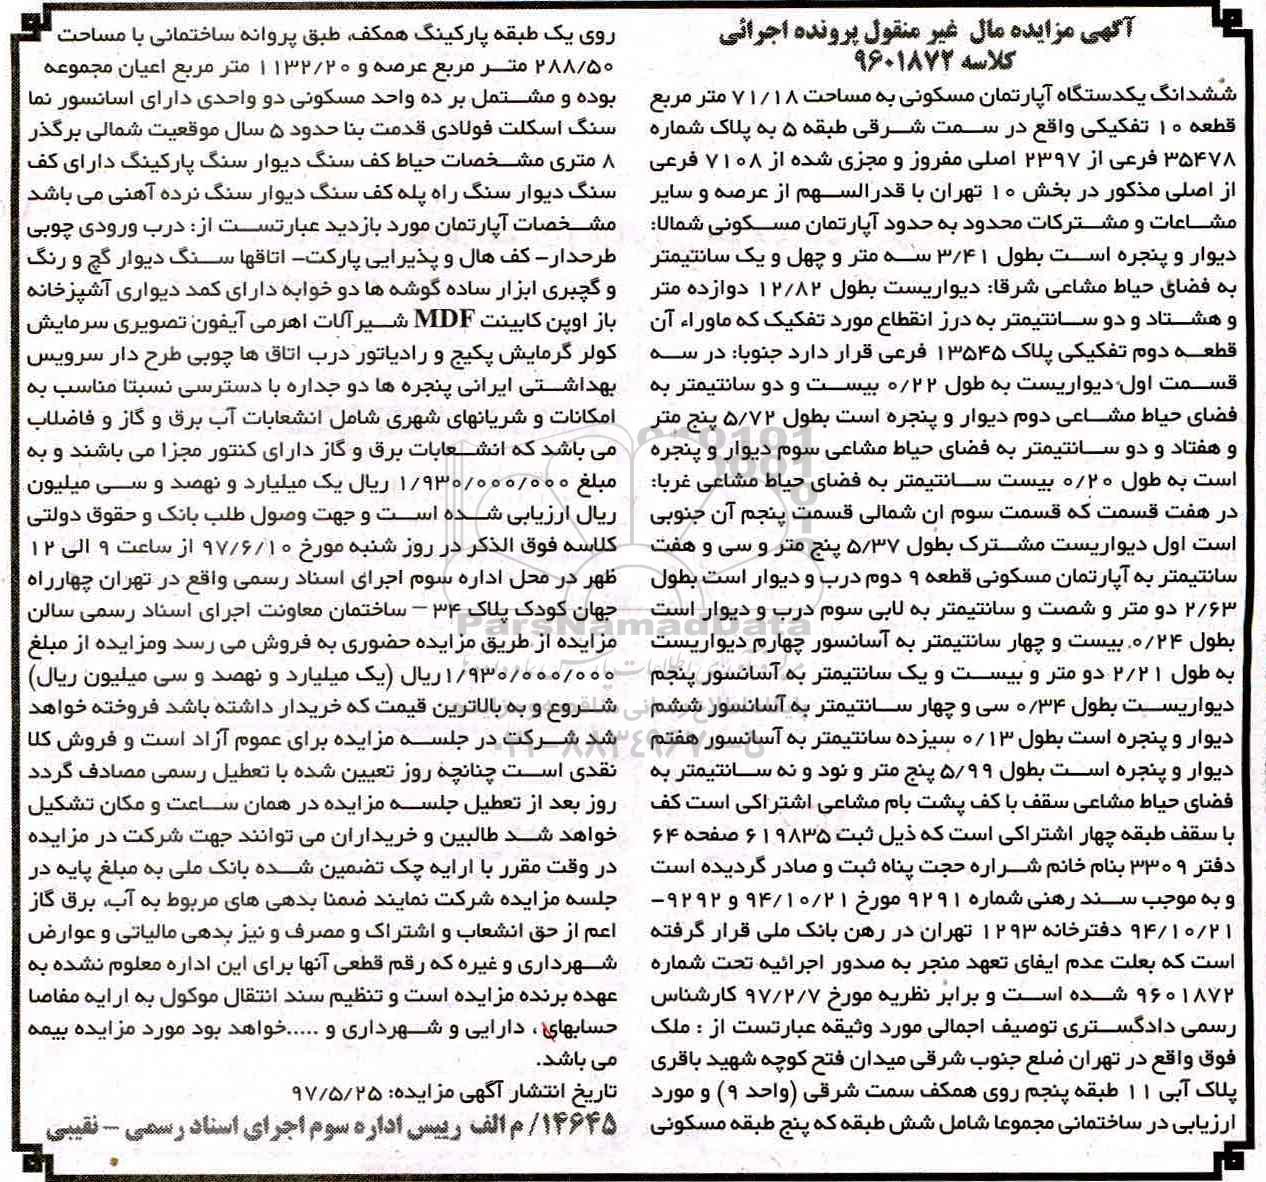 آگهی مزایده مال غیر منقول پرونده اجرائی
کلاسه ۹۶۰۱۸۷۲
ششدانگ یکدستگاه آپارتمان مسکونی به مساحت ۷۱/۱۸ متر مربع
قطعه ۱۰ تفکیکی واقع در سمت شرقی طبقه ۵ به پلاک شماره
۳۵۴۷۸ فرعی از ۲۳۹۷ اصلی مفروز و مجزی شده از ۷۱۰۸ فرعی
از اصلی مذکور در بخش ۱۰ تهران با قدرالسهم از عرصه و سایر
مشاعات و مشترکات محدود به حدود آپارتمان مسکونی شمالا:
دیوار و پنجره است بطول ۳/۴۱ سه متر و چهل و یک سانتیمتر
به فضای حیاط مشاعی شرقا: دیواریست بطول ۱۲/۸۲ دوازده متر
و هشتاد و دو سانتیمتر به درز انقطاع مورد تفکیک که ماوراء آن
قطعه دوم تفکیکی پلاک ۱۳۵۴۵ فرعی قرار دارد جنوبا: در سه
قسمت اول دیواریست به طول ۰/۲۲ بیست و دو سانتیمتر به
فضای حیاط مشاعی دوم دیوار و پنجره است بطول ۵/۷۲ پنج متر
و هفتاد و دو سانتیمتر به فضای حیاط مشاعی سوم دیوار و پنجره
است به طول ۰/۲۰ بیست سانتیمتر به فضای حیاط مشاعی غربا:
در هفت قسمت که قسمت سوم ان شمالی قسمت پنجم آن جنوبی
است اول دیواریست مشترک بطول ۵/۳۷ پنج متر و سی و هفت
سانتیمتر به آپارتمان مسکونی قطعه ۹ دوم درب و دیوار است بطول
۲/۶۳ دو متر و شصت و سانتیمتر به لابی سوم درب و دیوار است
بطول ۰/۲۴ بیست و چهار سانتیمتر به آسانسور چهارم دیواریست
به طول ۲/۲۱ دو متر و بیست و یک سانتیمتر به آسانسور پنجم
دیواریست بطول ۰/۳۴ سی و چهار سانتیمتر به آسانسور ششم
دیوار و پنجره است بطول ۰/۱۳ سیزده سانتیمتر به آسانسور هفتم
دیوار و پنجره است بطول ۵/۹۹ پنج متر و نود و نه سانتیمتر به
فضای حیاط مشاعی سقف با کف پشت بام مشاعی اشتراکی است کف
با سقف طبقه چهار اشتراکی است که ذیل ثبت ۶۱۹۸۳۵ صفحه ۶۴
دفتر ۳۳۰۹ بنام خانم شراره حجت پناه ثبت و صادر گردیده است
و به موجب سند رهنی شماره ۹۲۹۱ مورخ ۹۴/۱۰/۲۱ و ۹۲۹۲-
۹۴/۱۰/۲۱ دفترخانه ۱۲۹۳ تهران در رهن بانک ملی قرار گرفته
است که بعلت عدم ایفای تعهد منجر به صدور اجرائیه تحت شماره
۹۶۰۱۸۷۲ شده است و برابر نظریه مورخ ۹۷/۲/۷ کارشناس
رسمی دادگستری توصیف اجمالی مورد وثیقه عبارتست از : ملک
فوق واقع در تهران ضلع جنوب شرقی میدان فتح کوچه شهید باقری
پلاک آبی ۱۱ طبقه پنجم روی همکف سمت شرقی (واحد ۹) و مورد
ارزیابی در ساختمانی مجموعا شامل شش طبقه که پنج طبقه مسکونی
روی یک طبقه پارکینگ همکف، طبق پروانه ساختمانی با مساحت
۲۸۸/۵۰ متر مربع عرصه و ۱۱۳۲/۲۰ متر مربع اعیان مجموعه
بوده و مشتمل بر ده واحد مسکونی دو واحدی دارای اسانسور نما
سنگ اسکلت فولادی قدمت بنا حدود ۵ سال موقعیت شمالی برگذر
۸ متری مشخصات حیاط کف سنگ دیوار سنگ پارکینگ دارای کف
سنگ دیوار سنگ راه پله کف سنگ دیوار سنگ نرده آهنی می باشد
مشخصات آپارتمان مورد بازدید عبارتست از: درب ورودی چوبی
طرحدار- کف هال و پذیرایی پارکت- اتاقها سنگ دیوار گچ و رنگ
و گچبری ابزار ساده گوشه ها دو خوابه دارای کمد دیواری آشپزخانه
باز اوپن کابینت MDF شیرآلات اهرمی آیفون تصویری سرمایش
کولر گرمایش پکیج و رادیاتور درب اتاق ها چوبی طرح دار سرویس
بهداشتی ایرانی پنجره ها دو جداره با دسترسی نسبتا مناسب به
امکانات و شریانهای شهری شامل انشعابات آب برق و گاز و فاضلاب
می باشد که انشعابات برق و گاز دارای کنتور مجزا می باشند و به
مبلغ ۱/۹۳۰/۰۰۰/۰۰۰ ریال یک میلیارد و نهصد و سی میلیون
ریال ارزیابی شده است و جهت وصول طلب بانک و حقوق دولتی
کلاسه فوق الذکر در روز شنبه مورخ ۹۷/۶/۱۰ از ساعت ۹ الی ۱۲
ظهر در محل اداره سوم اجرای اسناد رسمی واقع در تهران چهارراه
جهان کودک پلاک ۳۴ – ساختمان معاونت اجرای اسناد رسمی سالن
مزایده از طریق مزایده حضوری به فروش می رسد ومزایده از مبلغ
۱/۹۳۰/۰۰۰/۰۰۰ریال (یک میلیارد و نهصد و سی میلیون ریال)
شروع و به بالاترین قیمت که خریدار داشته باشد فروخته خواهد
شد شرکت در جلسه مزایده برای عموم آزاد است و فروش کلا
نقدی است چنانچه روز تعیین شده با تعطیل رسمی مصادف گردد
روز بعد از تعطیل جلسه مزایده در همان ساعت و مکان تشکیل
خواهد شد طالبین و خریداران می توانند جهت شرکت در مزایده
در وقت مقرر با ارایه چک تضمین شده بانک ملی به مبلغ پایه در
جلسه مزایده شرکت نمایند ضمنا بدهی های مربوط به آب، برق گاز
اعم از حق انشعاب و اشتراک و مصرف و نیز بدهی مالیاتی و عوارض
شهرداری و غیره که رقم قطعی آنها برای این اداره معلوم نشده به
عهده برنده مزایده است و تنظیم سند انتقال موکول به ارایه مفاصا
حسابهای ، دارایی و شهرداری و .....خواهد بود مورد مزایده بیمه
می باشد.
تاریخ انتشار آگهی مزایده: ۹۷/۵/۲۵
۱۴۶۴۵/ م الف رییس اداره سوم اجرای اسناد رسمی – نقیبی
ParsNamadData
۰۲۱-۸۸۳۴۹۶۷۰-۵